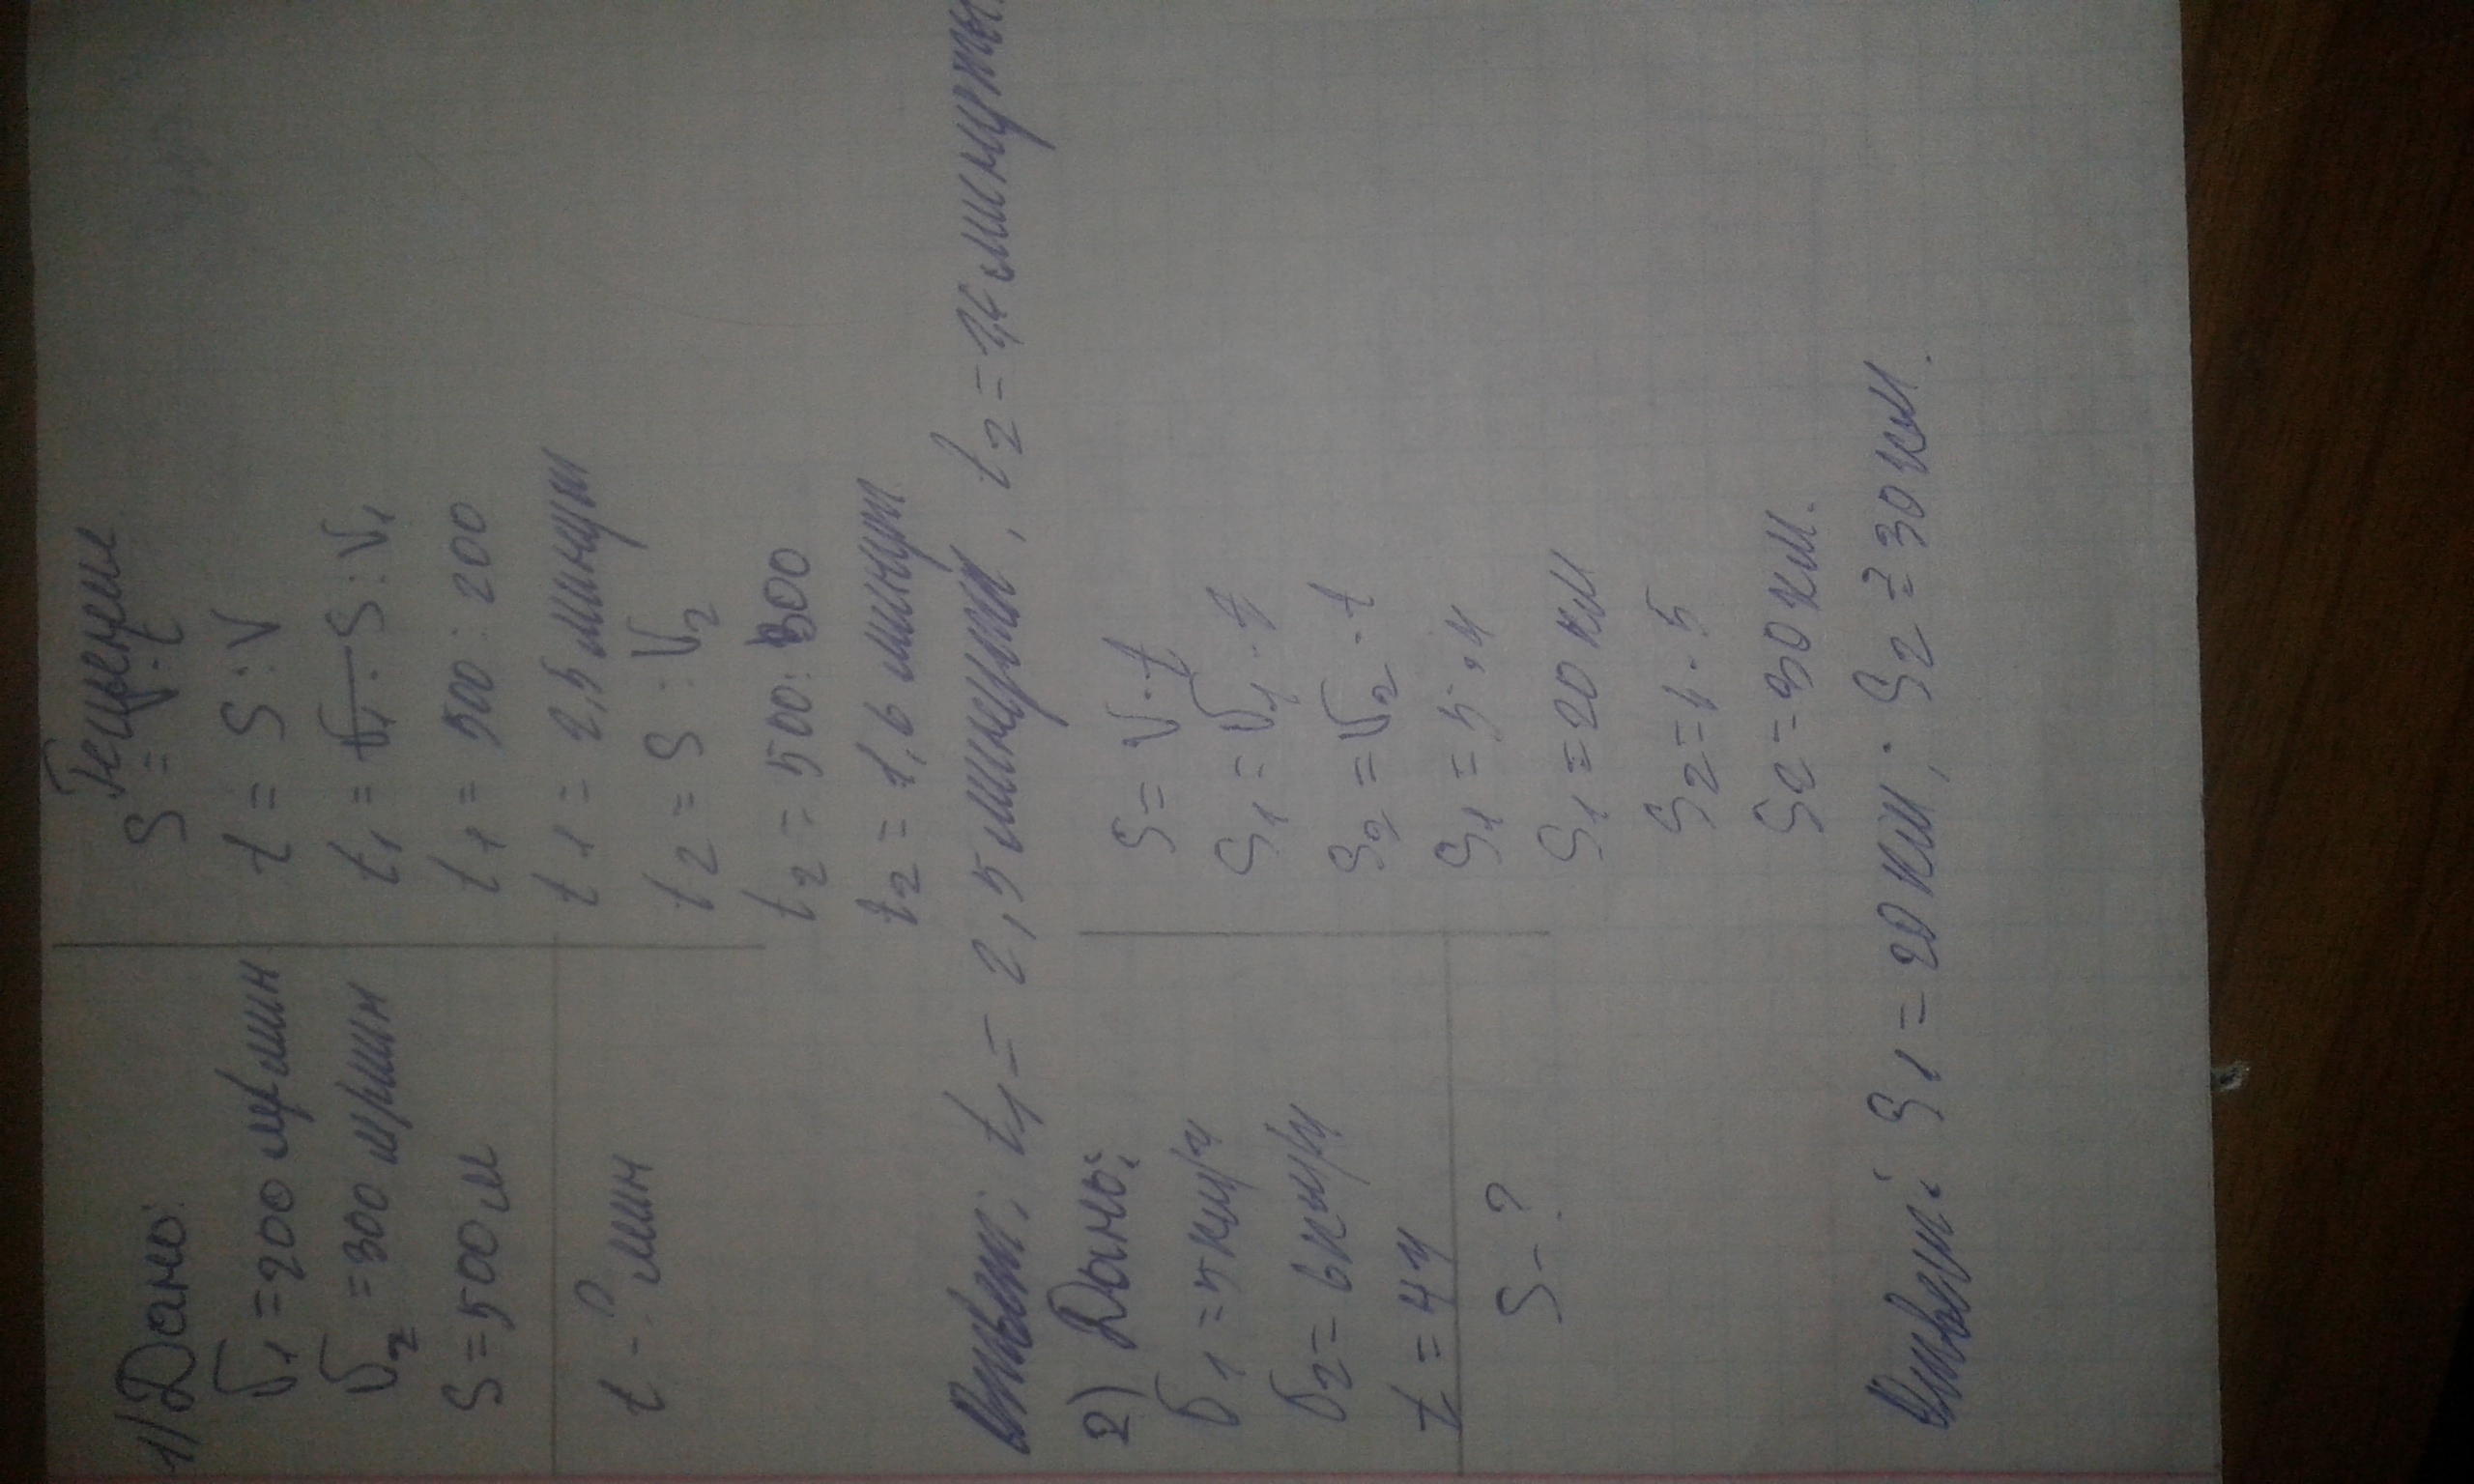 1) Дано:
V1 = 200 м/мин
V2 = 300 м/мин
S = 500 м
t - ? мин
Решение
S =
t = S : V
t1 = S : V1
t1 = 500 : 200
t1 = 2,5 минут
t2 = S : V2
t2 = 500 : 300
t2 = 1,6 минут
Ответ: t1 = 2,5 минуты, t2 = минуты.
2) Дано:
V1 = 5 км/ч
V2 = 6 км/ч
t = 4ч
S - ?
S = V · t
S1 = V1 · t
S2 = V2 · t
S1 = 5 · 4
S1 = 20 км
S2 = 6 · 5
S2 = 30 км.
Ответ: S1 = 20 км; S2 = 30 км.